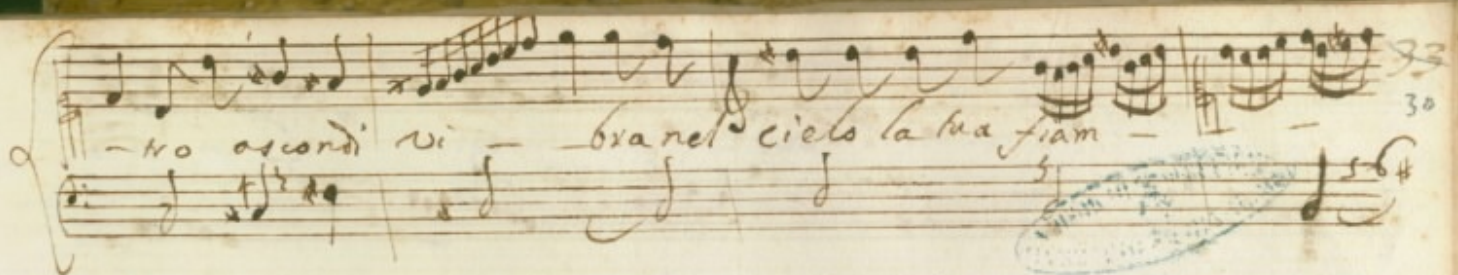 -tro ascondi vi - - bra nel cielo la tua fiam - - -
5
5 6 #
30